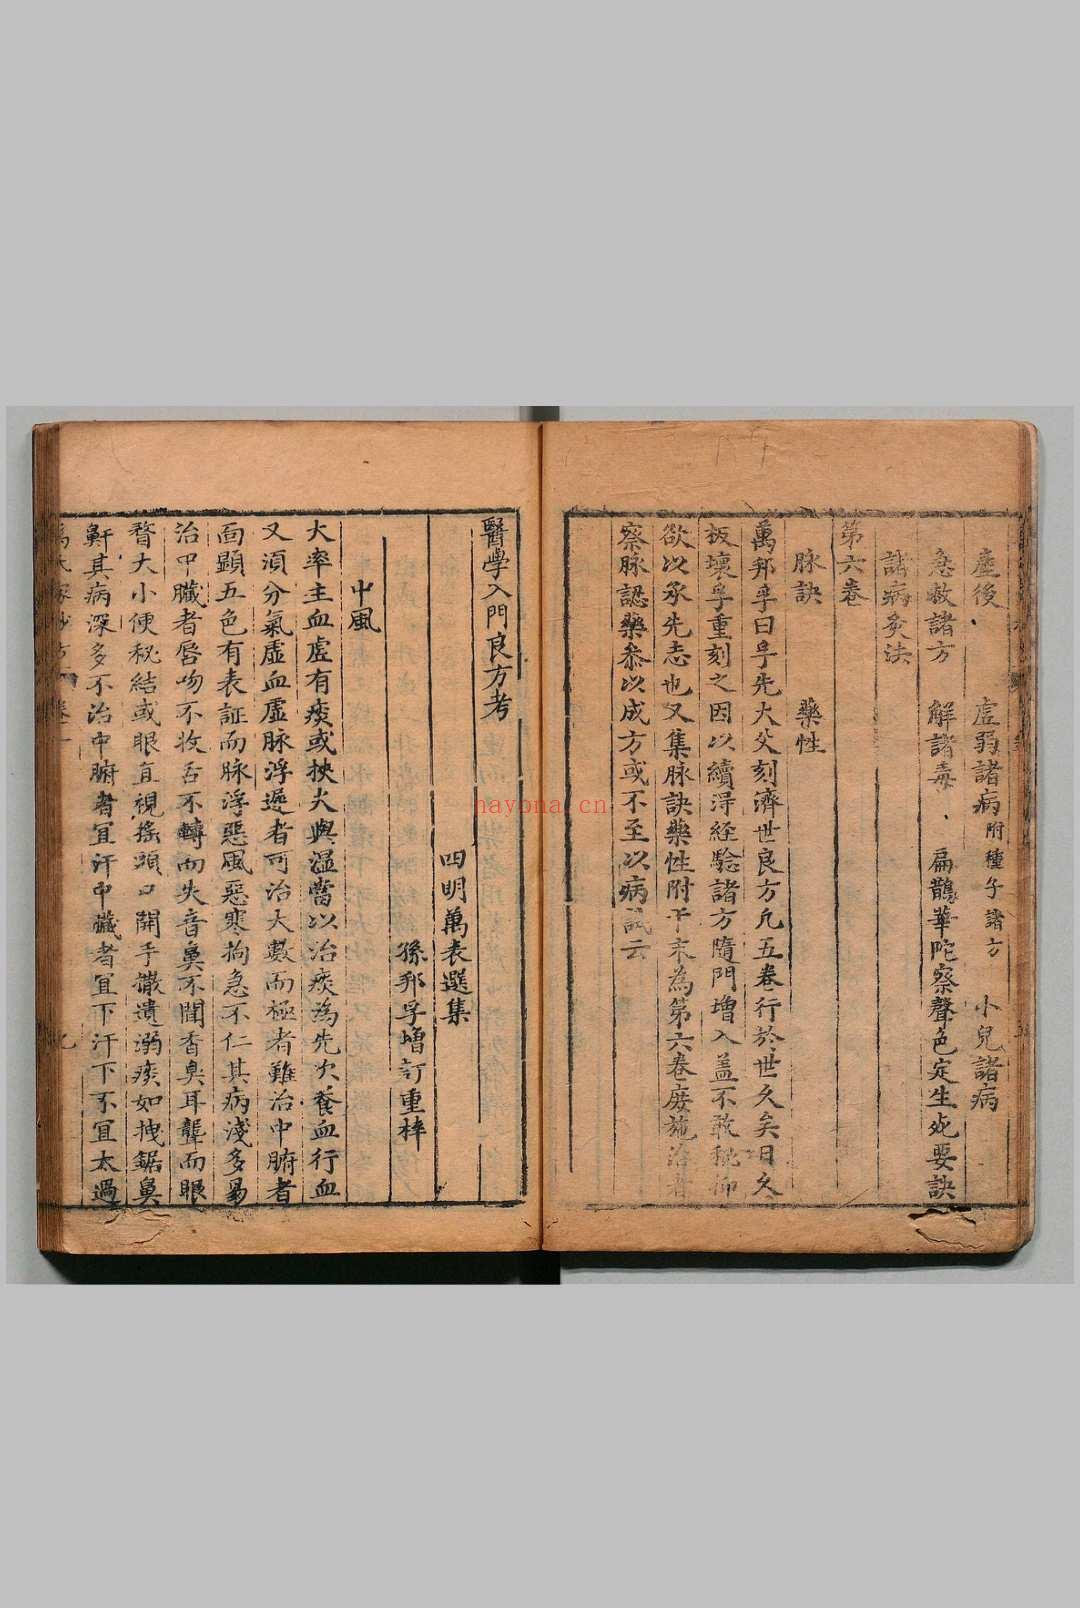 產後 虛弱諸病附種子諸方 小兒諸病
急救諸方 解諸毒 扁鵲華陀察聲色定生死要訣
諸病灸法
第六卷
脉訣 藥性
萬邦孚曰孚先大父刻濟世良方凡五卷行於世久矣日久
板壞孚重刻之因以續得経驗諸方隨門增入盖不敢秘仰
欲以承先志也又集脉訣藥性附于末為第六卷庶施治者
察脉認藥叅以成方或不至以病試云
醫學入門良方考
四明萬表選集
孫邦孚增訂重梓
中風
大率主血虛有痰或挾火與溼當以治痰為先次養血行血
又須分氣虛血虛脉浮遲者可治大數而極者難治中腑者
面顯五色有表証而脉浮惡風惡寒拘急不仁其病淺多易
治中臟者唇吻不收舌不轉而失音鼻不聞香臭耳聾而眼
瞀大小便秘結或眼直視搖頭口開手撒遺溺痰如拽鋸鼻
鼾其病深多不治中腑者宜汗中臟者宜下汗下不宜太過
萬氏家抄方 卷一
hayona.cn